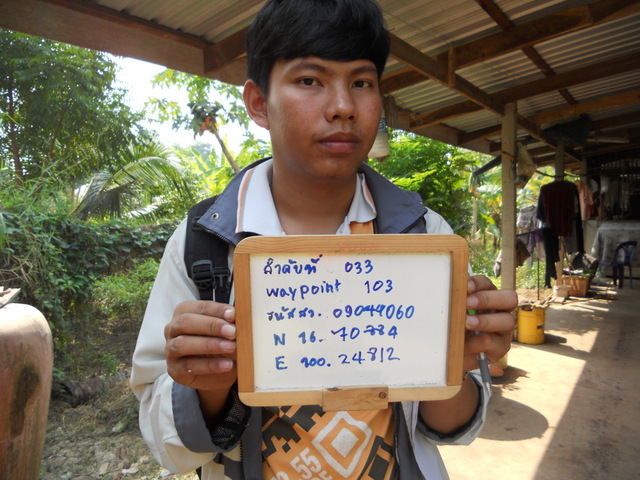 ลำดับที่ 033
waypoint 103
รหัสสร. 09049060
N 16. 70784
E 100. 24812
55